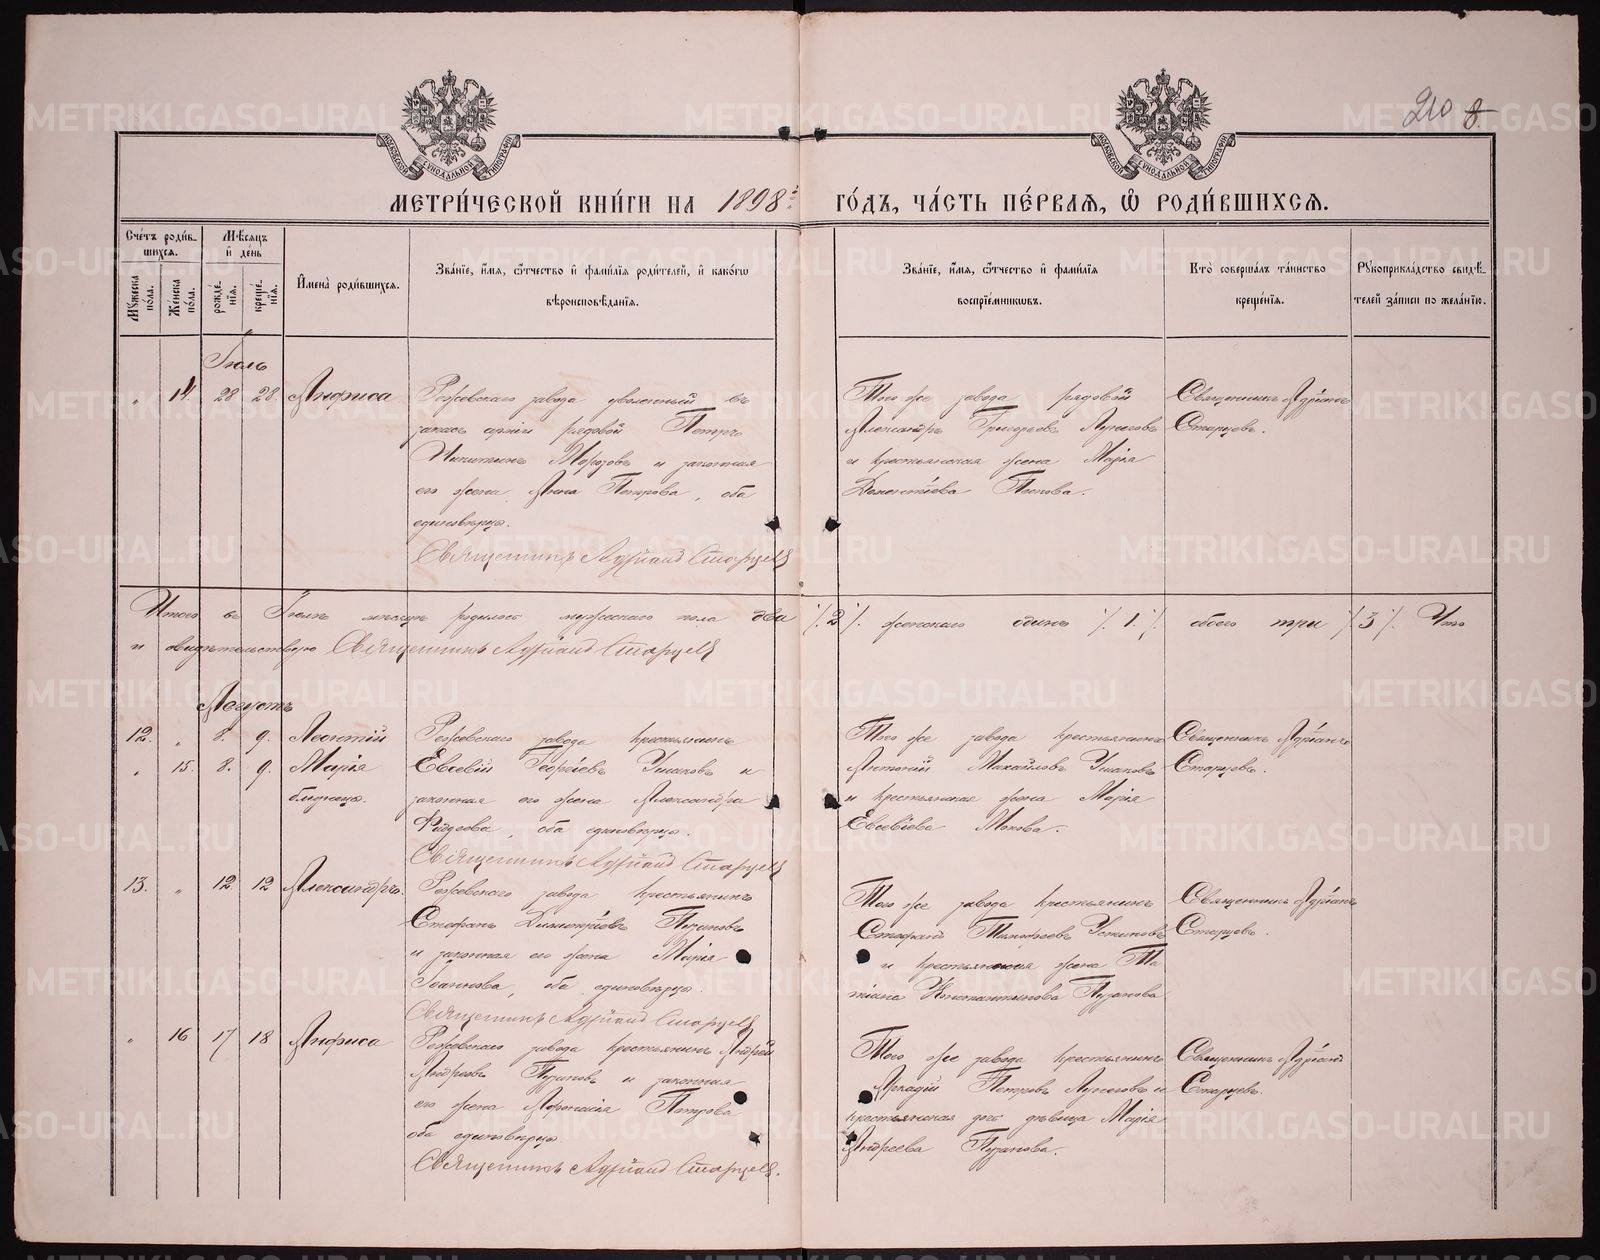 210 8
МЕТРИ́ЧЕСКОЙ КНИ́ГИ НА 1898 ГО́ДЪ, ЧА́СТЬ ПЕ́РВАЯ, Ѽ РОДИ́ВШИХСЯ.
Сче́тъ роди́вшихся.
Му́жеска по́ла.
Же́нска по́ла.
Мѣ́сяцъ и҆ де́нь
рожде́нїя.
креще́нїя.
И҆мена̀ роди́вшихся.
Зва́нїе, и҆́мя, ѻ҆́тчество и҆ фами́лїя роди́телей, и҆ како́гѡ
вѣроисповѣ́данїя.
Зва́нїе, и҆́мя, ѻ҆́тчество и҆ фами́лїя
воспрїе́мникѡвъ.
Кто̀ соверша́лъ та́инство
креще́нїя.
Рꙋкоприкла́дство свидѣ́телей за́писи по жела́нїю.
Іюль
" 14 28 28 Анфиса
Режевскаго завода уволенный въ
запасъ арміи рядовой Петръ
Никитинъ Морозовъ и законная
его жена Анна Петрова, оба
единовѣрцы.
Священникъ Адріанъ Старцевъ
Того же завода рядовой
Александръ Григорьевъ Лукинъ
и крестьянская жена Марія
Попова.
Священникъ Адріанъ
Старцевъ.
Итого въ Іюлѣ мѣсяцѣ родилось мужескаго пола два /.2/. женскаго одинъ /.1./. обоего три /.3/. Что
и свидѣтельствую Священникъ Адріанъ Старцевъ
Августъ
12. " 8. 9. Леонтій
" 15. 8. 9. Марія
близнецы.
Режевскаго завода крестьянинъ
Евсевій Георгіевъ Ушаковъ и
законная его жена Александра
Фадеева, оба единовѣрцы.
Священникъ Адріанъ Старцевъ
Того же завода крестьянинъ
Антоній Михайловъ Ушаковъ
и крестьянская жена Марія
Евсевіева Мокова.
Священникъ Адріанъ
Старцевъ.
13. " 12 12 Александръ.
Режевскаго завода крестьянинъ
Стефанъ Димитріевъ Пузановъ
и законная его жена Марія
Іоаннова, оба единовѣрцы.
Священникъ Адріанъ Старцевъ
Того же завода крестьянинъ
Стефанъ Тимофеевъ Устиновъ
и крестьянская жена Татіана Константинова Пузанова
Священникъ Адріанъ
Старцевъ.
" 16 17 18 Анфиса
Режевскаго завода крестьянинъ Андрей
Андреевъ Пузановъ и законная
его жена Афанасія Петрова
оба единовѣрцы.
Священникъ Адріанъ Старцевъ.
Того же завода крестьянинъ
Аркадій Петровъ и
крестьянская дочь дѣвица Марія
Андреева Пузанова.
Священникъ Адріанъ
Старцевъ.
METRIKI.GASO-URAL.RU